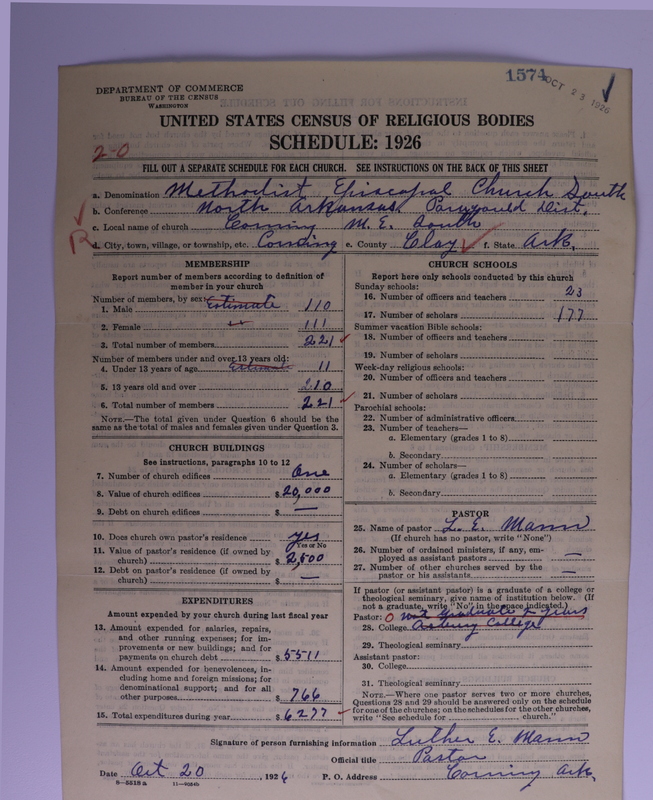 1574 OCT 23 1926
DEPARTMENT OF COMMERCE
BUREAU OF THE CENSUS
WASHINGTON
UNITED STATES CENSUS OF RELIGIOUS BODIES
SCHEDULE: 1926
2-0
FILL OUT A SEPARATE SCHEDULE FOR EACH CHURCH. SEE INSTRUCTIONS ON THE BACK OF THIS SHEET
a. Denomination Methodist Episcopal Church South
b. Conference North Arkansas. Paragould Dist.
c. Local name of church Corning M. E. South
R
d. City, town, village, or township, etc. Corning e. County Clay f. State Ark.
MEMBERSHIP
Report number of members according to definition of
member in your church
Number of members, by sex: Estimate
1. Male 110
2. Female " 111
3. Total number of members 221
Number of members under and over 13 years old:
4. Under 13 years of age Estimate 11
5. 13 years old and over 210
6. Total number of members 221
NOTE.—The total given under Question 6 should be the
same as the total of males and females given under Question 3.
CHURCH BUILDINGS
See instructions, paragraphs 10 to 12
7. Number of church edifices One
8. Value of church edifices $20,000
9. Debt on church edifices $ —
10. Does church own pastor's residence? yes
Yes or No
11. Value of pastor's residence (if owned by
church) $2,500
12. Debt on pastor's residence (if owned by
church) $ —
EXPENDITURES
Amount expended by your church during last fiscal year
13. Amount expended for salaries, repairs,
and other running expenses; for im-
provements or new buildings; and for
payments on church debt $5511
14. Amount expended for benevolences, in-
cluding home and foreign missions; for
denominational support; and for all
other purposes $766
15. Total expenditures during year $6277
CHURCH SCHOOLS
Report here only schools conducted by this church
Sunday schools:
16. Number of officers and teachers 23
17. Number of scholars 177
Summer vacation Bible schools:
18. Number of officers and teachers
19. Number of scholars
Week-day religious schools:
20. Number of officers and teachers
21. Number of scholars
Parochial schools:
22. Number of administrative officers
23. Number of teachers—
a. Elementary (grades 1 to 8)
b. Secondary
24. Number of scholars—
a. Elementary (grades 1 to 8)
b. Secondary
PASTOR
25. Name of pastor L. E. Mann
(If church has no pastor, write "None")
26. Number of ordained ministers, if any, em-
ployed as assistant pastors —
27. Number of other churches served by the
pastor or his assistants —
If pastor (or assistant pastor) is a graduate of a college or
theological seminary, give name of institution below. (If
not a graduate, write "No" in the space indicated.)
Pastor: O not graduate 2 years
28. College Asbury College
29. Theological seminary
Assistant pastor:
30. College
31. Theological seminary
NOTE.—Where one pastor serves two or more churches,
Questions 28 and 29 should be answered only on the schedule
for one of the churches; on the schedules for the other churches,
write "See schedule for church."
Signature of person furnishing information Luther E. Mann
Official title Pastor
Date Oct 20, 1926 P. O. Address Corning Ark.
8—5518a 11—9054b